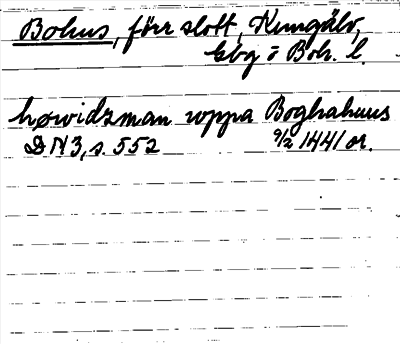 Bohus, förr slott, Kungälv,
Gbg o Boh. l.
höwidzman uppa Boghahuus
DN 3, s. 552 9/2 1441 or.